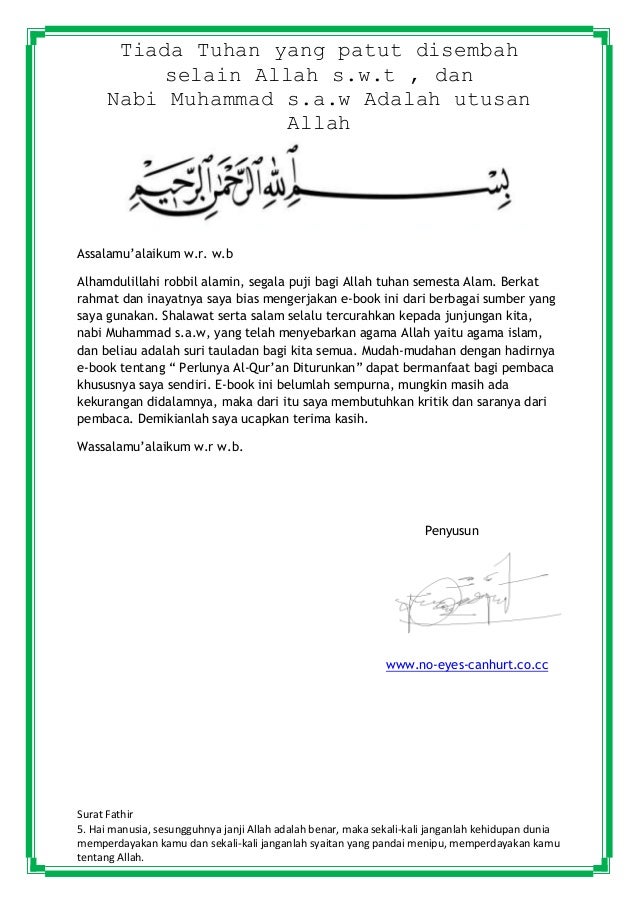 Tiada Tuhan yang patut disembah
selain Allah s.w.t , dan
Nabi Muhammad s.a.w Adalah utusan
Allah
بسم الله الرحمن الرحيم
Assalamu’alaikum w.r. w.b
Alhamdulillahi robbil alamin, segala puji bagi Allah tuhan semesta Alam. Berkat
rahmat dan inayatnya saya bias mengerjakan e-book ini dari berbagai sumber yang
saya gunakan. Shalawat serta salam selalu tercurahkan kepada junjungan kita,
nabi Muhammad s.a.w, yang telah menyebarkan agama Allah yaitu agama islam,
dan beliau adalah suri tauladan bagi kita semua. Mudah-mudahan dengan hadirnya
e-book tentang “ Perlunya Al-Qur’an Diturunkan” dapat bermanfaat bagi pembaca
khususnya saya sendiri. E-book ini belumlah sempurna, mungkin masih ada
kekurangan didalamnya, maka dari itu saya membutuhkan kritik dan saranya dari
pembaca. Demikianlah saya ucapkan terima kasih.
Wassalamu’alaikum w.r w.b.
Penyusun
www.no-eyes-canhurt.co.cc
Surat Fathir
5. Hai manusia, sesungguhnya janji Allah adalah benar, maka sekali-kali janganlah kehidupan dunia
memperdayakan kamu dan sekali-kali janganlah syaitan yang pandai menipu, memperdayakan kamu
tentang Allah.